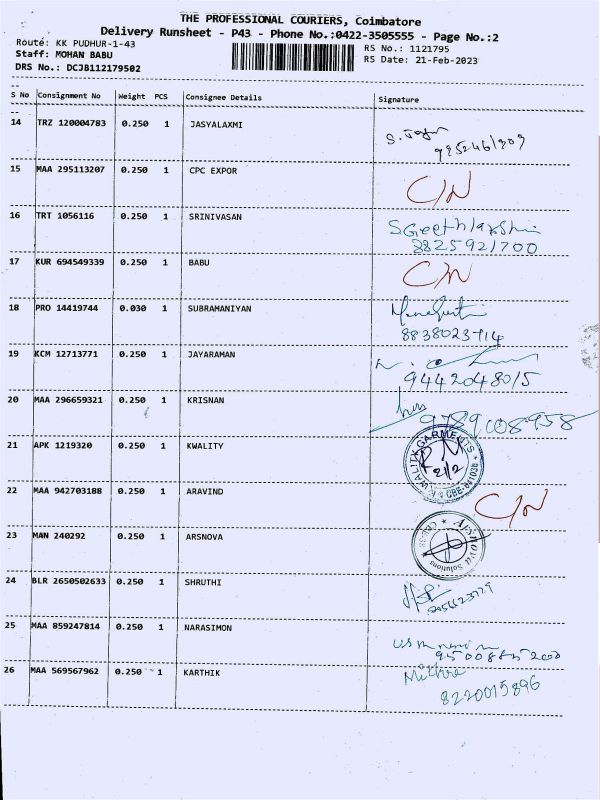 THE PROFESSIONAL COURIERS, Coimbatore
Delivery Runsheet - P43 - Phone No.:0422-3505555 - Page No.:2
Route: KK PUDHUR-1-43 RS No.: 1121795
Staff: MOHAN BABU RS Date: 21-Feb-2023
DRS No.: DCJB112179502
S No Consignment No Weight PCS Consignee Details Signature
14 TRZ 120004783 0.250 1 JASYALAXMI
15 MAA 295113207 0.250 1 CPC EXPOR C/N
16 TRT 1056116 0.250 1 SRINIVASAN
8825921700
17 KUR 694549339 0.250 1 BABU C/N
18 PRO 14419744 0.030 1 SUBRAMANIYAN
19 KCM 12713771 0.250 1 JAYARAMAN
9442048015
20 MAA 296659321 0.250 1 KRISNAN
9789008958
21 APK 1219320 0.250 1 KWALITY KWALITY GARMENTS
22 MAA 942703188 0.250 1 ARAVIND C/N
23 MAN 240292 0.250 1 ARSNOVA Arsnova Solutions
24 BLR 2650502633 0.250 1 SHRUTHI
25 MAA 859247814 0.250 1 NARASIMON
26 MAA 569567962 0.250 1 KARTHIK
8220015896